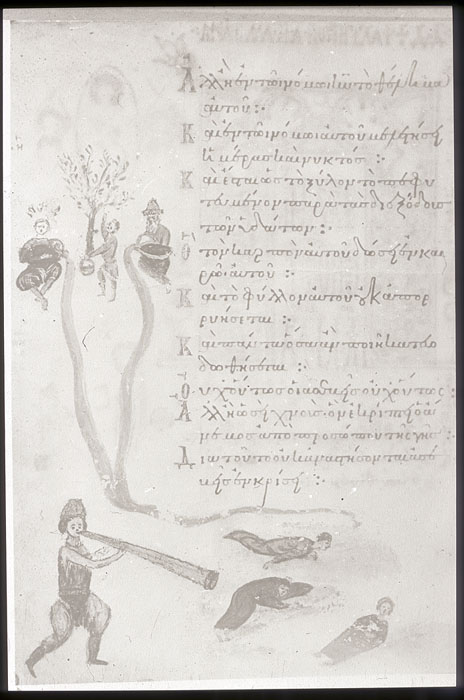 Ἀλλ' ἢ ἐν τῶ νόμω κ(υρίο)υ τὸ θέλημα
αὐτοῦ :·
Καὶ ἐν τῶ νόμω αὐτοῦ μελετήσει
ἡμέρας καὶ νυκτός :
Καὶ ἔσται ὡς τὸ ξύλον τὸ πεφυ
τευμένον παρὰ τὰς διεξόδους
τῶν ὑδάτων :
Ὃ τὸν καρπὸν αὐτοῦ δώσει ἐν και
ρῶ αὐτοῦ :
Καὶ τὸ φύλλον αὐτοῦ οὐκ ἀπορ
ρυήσεται :
Καὶ πάντα ὅσα ἂν ποιῆ κατευο
δωθήσεται :
Οὐχ οὕτως οἱ ἀσεβεῖς οὐχ οὕτως :
Ἀλλ' ἢ ὡσεὶ χνοῦς ὃν ἐκρίπτει ὁ ἄ
νεμος ἀπὸ προσώπου τῆς γῆς :
Διὰ τοῦτο οὐκ ἀναστήσονται ἀσε
βεῖς ἐν κρίσει :